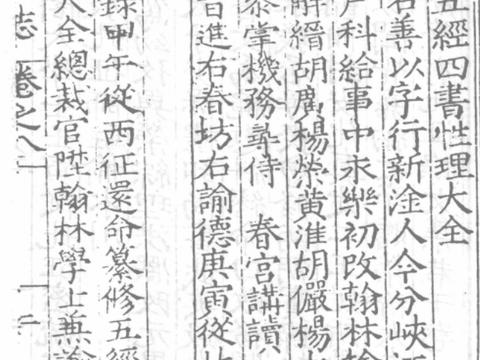 五經四書性理大全
名善以字行新淦人今分峽
戶科給事中永樂初改翰林
解縉胡廣楊榮黃淮胡儼楊
叅掌機務尋侍 春宮講讀
晋進右春坊右諭德庚寅從
錄甲午從西征還命纂修五經
大全總裁官陞翰林學士兼諭
志 卷之八